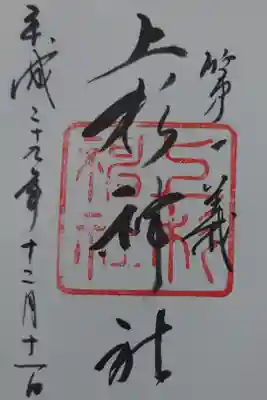 第一義
上杉神社
平成二十九年十二月十一日
上杉
神社